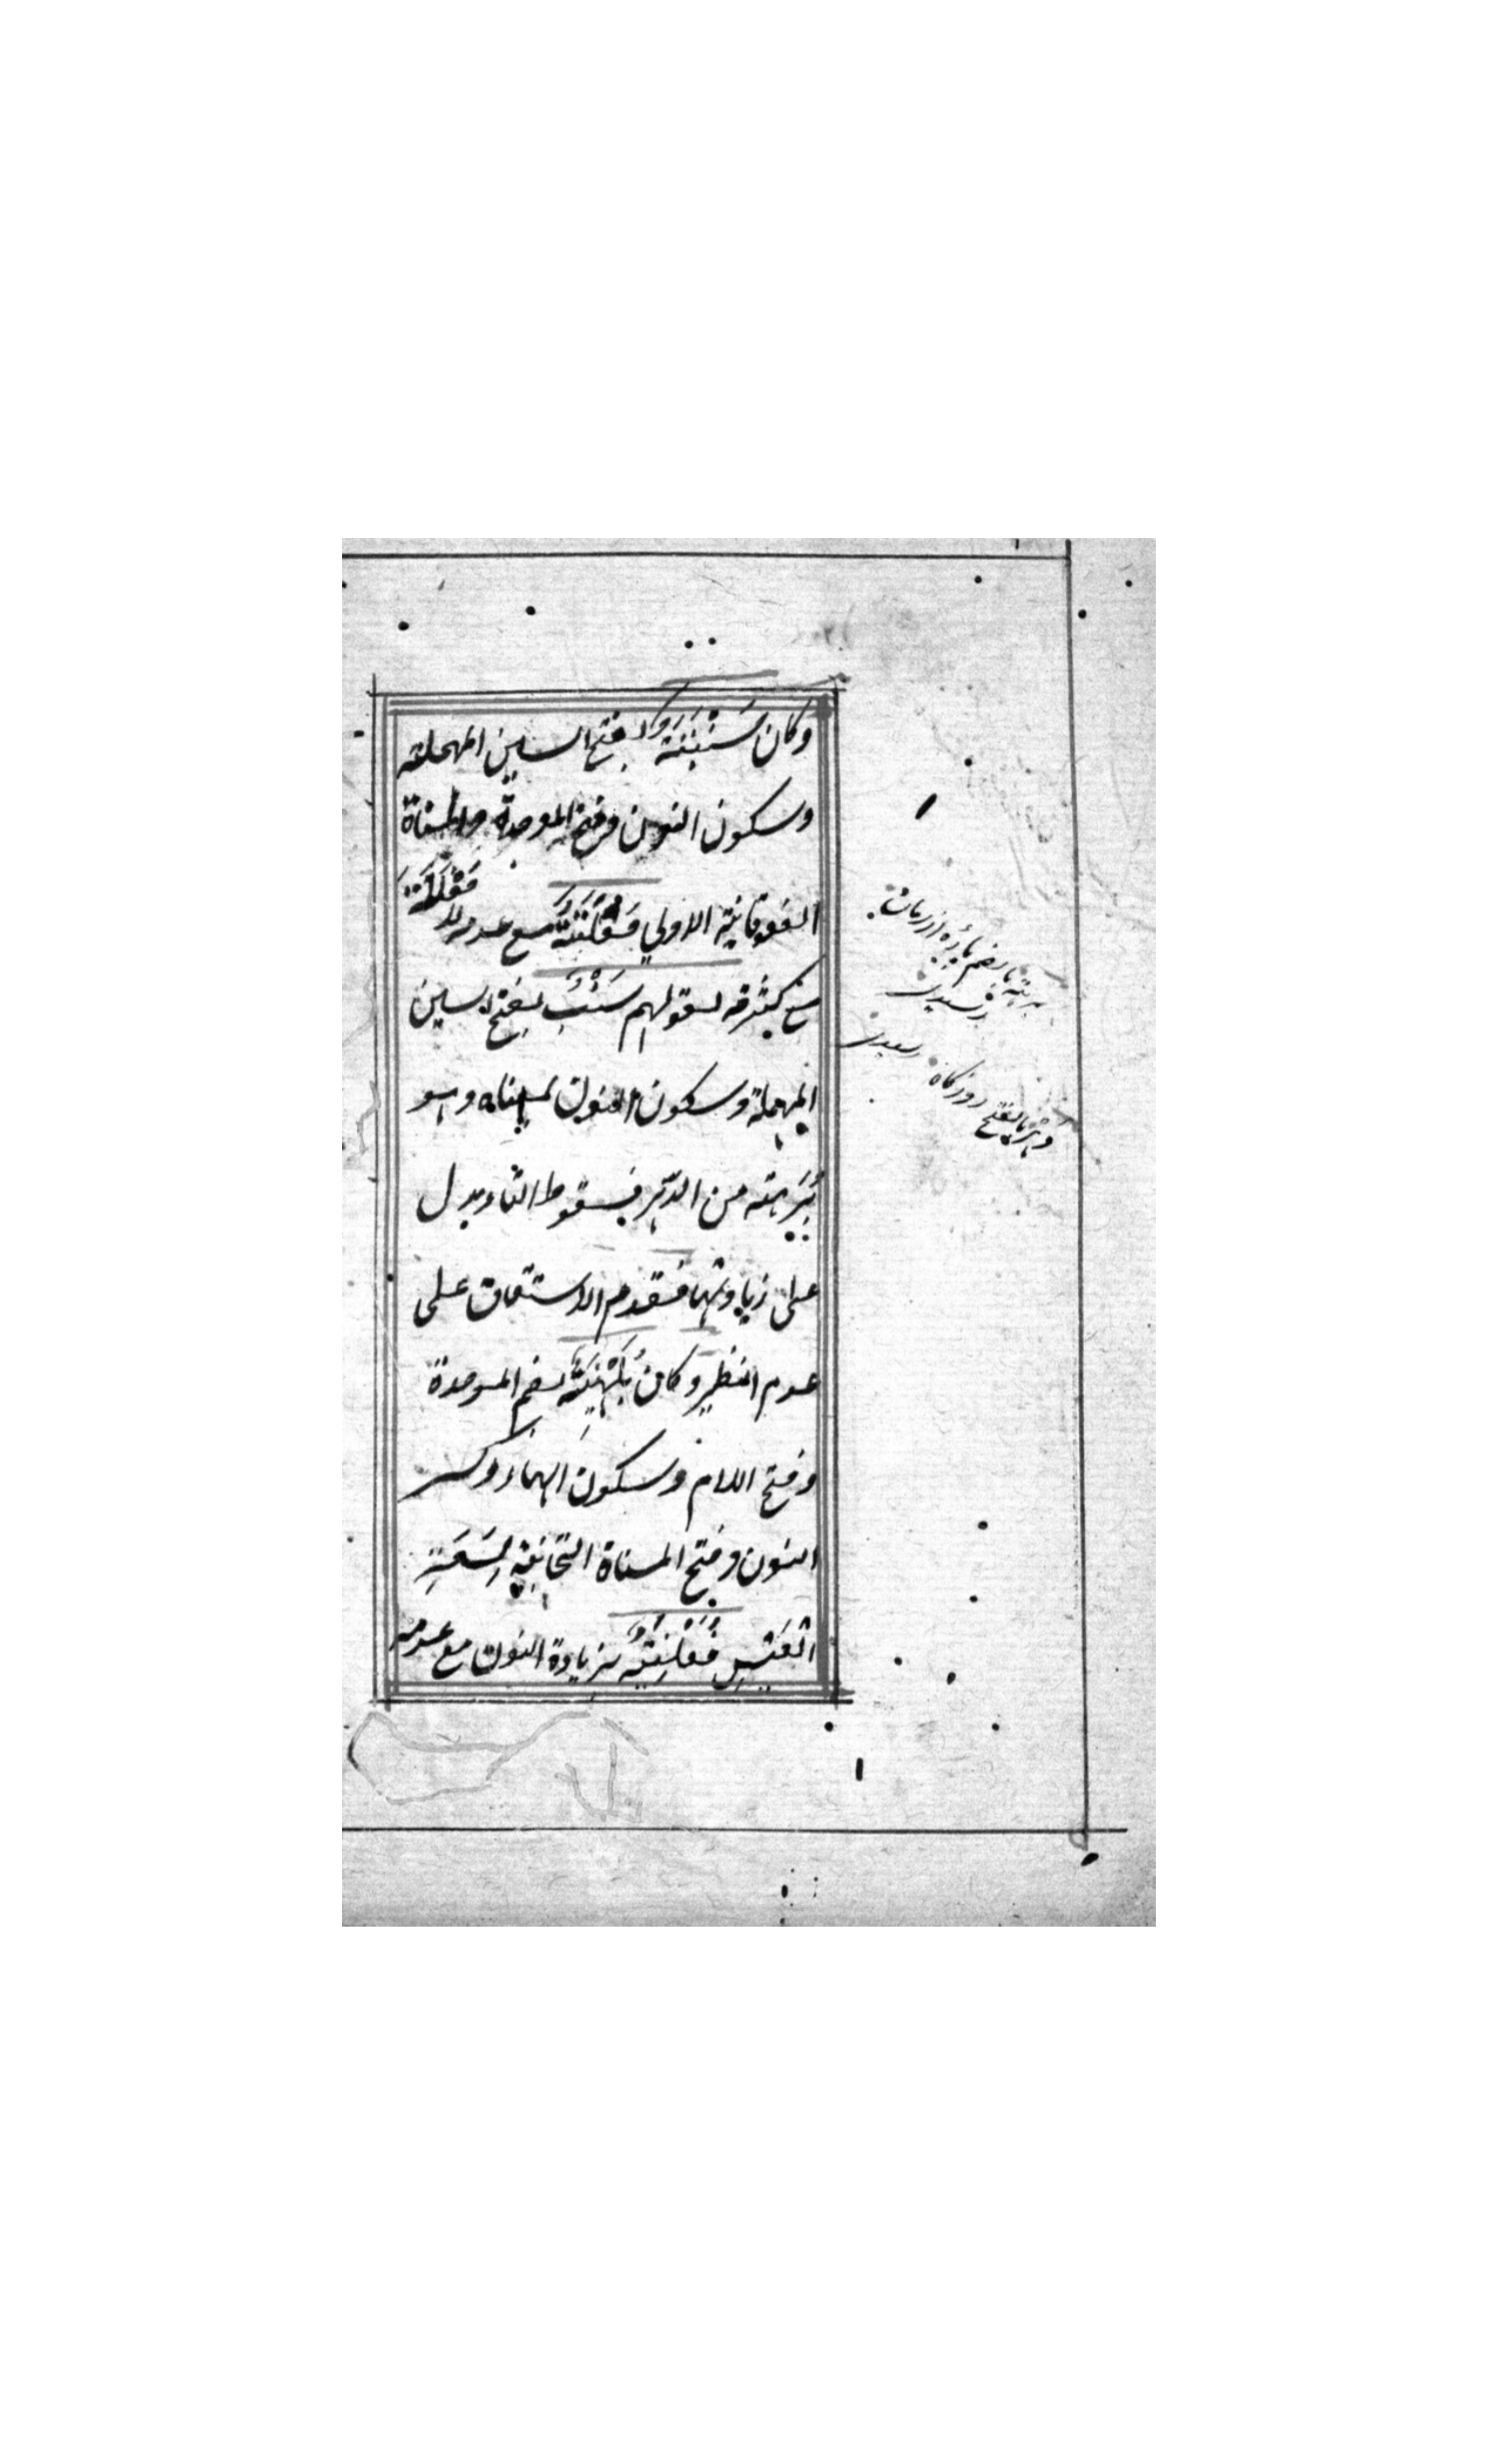 وكان سَنْبَتَةٌ بفتح السين المهملة
وسكون النون وفتح الموحدة والمثناة
الفوقانية الاولي فَعْلَتَةٌ مع عدم
فَعْلَتَةٌ
مع كثرته لقولهم سَنْبٌ بفتح السين
المهملة وسكون النون لمعناه وهو
بُرَهة من الدهر فسقوط التاء يدل
على زيادتها فقدم الاشتقاق على
عدم النظير وكان بُلَهْنِيَةٌ بضم الموحدة
وفتح اللام وسكون الهاء وكسر
النون وفتح المثناة التحتانية لِسَعَةِ
الْعَيْشِ فُعَلْنِيَةٌ بزيادة النون مع عدمه
برهة بالضم پاره از زمان
دهر بالفتح روزگار